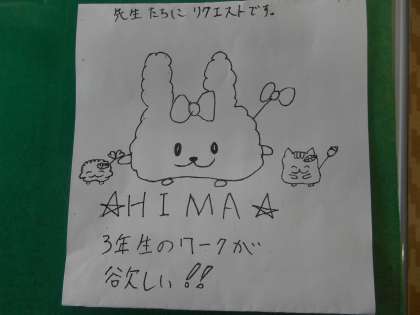 先生たちに リクエストです。
☆HIMA☆
3年生のワークが
欲しい!!